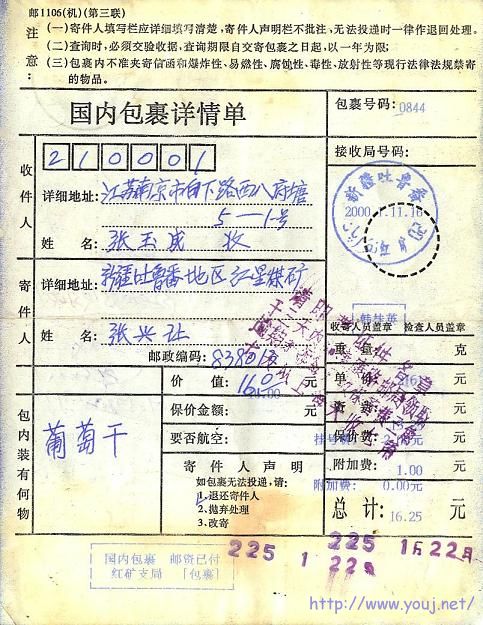 邮1106(机)(第三联)
注意:
(一)寄件人填写栏应详细填写清楚,寄件人声明栏不批注,无法投递时一律作退回处理。
(二)查询时,必须交验收据,查询期限自交寄包裹之日起,以一年为限;
(三)包裹内不准夹寄信函和爆炸性、易燃性、腐蚀性、毒性、放射性等现行法律法规禁寄的物品。
国内包裹详情单
包裹号码:0844
210001
接收局号码:
收件人
详细地址:江苏南京市白下路西八府塘
5—1号
姓 名:张玉成 收
新疆吐鲁番
2000.1.11.16
寄件人
详细地址:新疆吐鲁番地区红星煤矿
姓 名:张兴让
邮政编码:838018
韩桂英
收寄人员盖章 检查人员盖章
重 量: 克
价 值:160 元
单 价: 元
保价金额: 元
资 费: 元
包内装有何物
葡萄干
要否航空:
挂号费
保价费: 元
寄件人声明
如包裹无法投递,请:
1.退还寄件人
2.抛弃处理
3.改寄
附加费:1.00 元
附加费:0.00元
总 计:16.25 元
国内包裹 邮资已付
红矿支局 [包裹]
225 1
225 1月22日
http://www.youj.net/